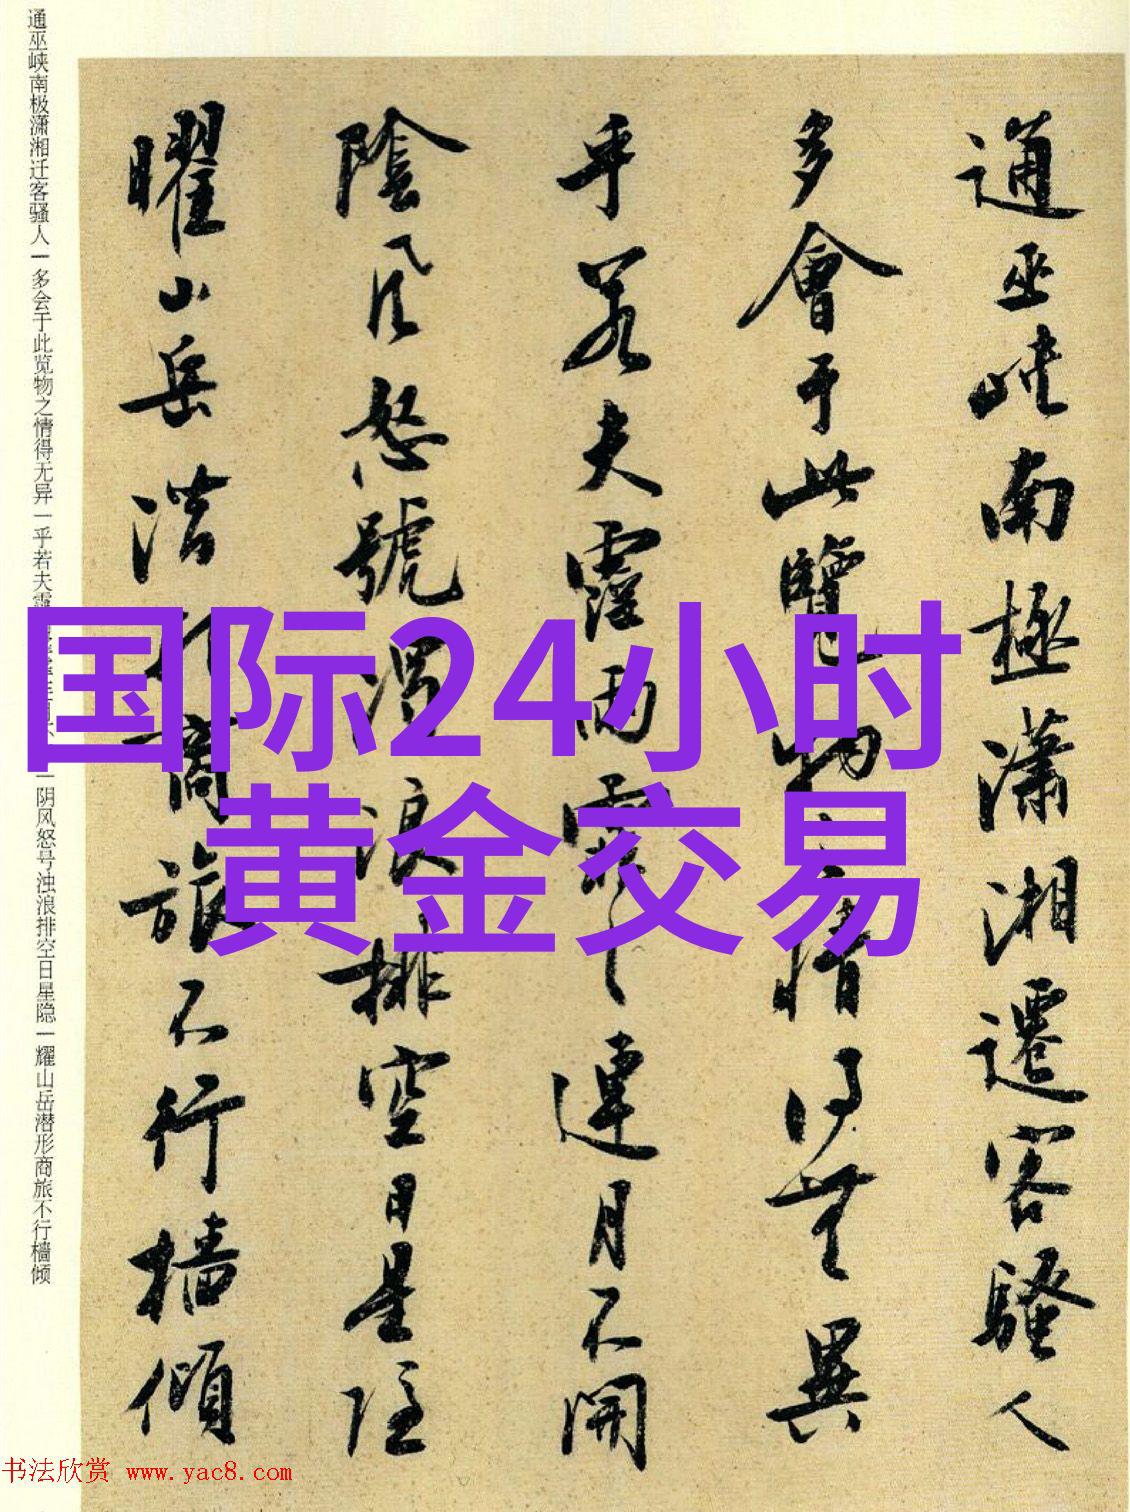 通巫峡南極瀟湘遷客騷人
多會于此覽物情得無異
乎若夫霪雨霏〻連月不開
陰風怒號濁浪排空日星隐
曜山岳潜形商旅不行檣傾
国际24小时
黄金交易
通巫峡南极潇湘迁客骚人一多会于此览物之情得无异一乎若夫一阴风怒号浊浪排空日星隐一耀山岳潜形商旅不行樯倾
书法欣赏 www.yac8.com